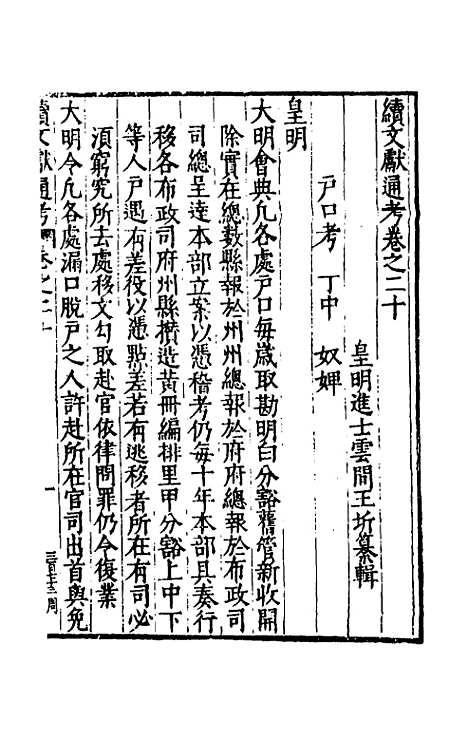 續文獻通考卷之二十
皇明進士雲間王圻纂輯
戶口考 丁中 奴婢
皇明
大明會典凡各處戶口每歲取勘明白分豁舊管新收開
除實在總數縣報於州州總報於府府總報於布政司
司總呈達本部立案以憑稽考仍每十年本部具奏行
移各布政司府州縣攢造黃冊編排里甲分豁上中下
等人戶遇有差役以憑點差若有逃移者所在有司必
湏窮究所去處移文勾取赴官依律問罪仍令復業
大明令凡各處漏口脫戶之人許赴所在官司出首與免
續文獻通考 卷之二十
一